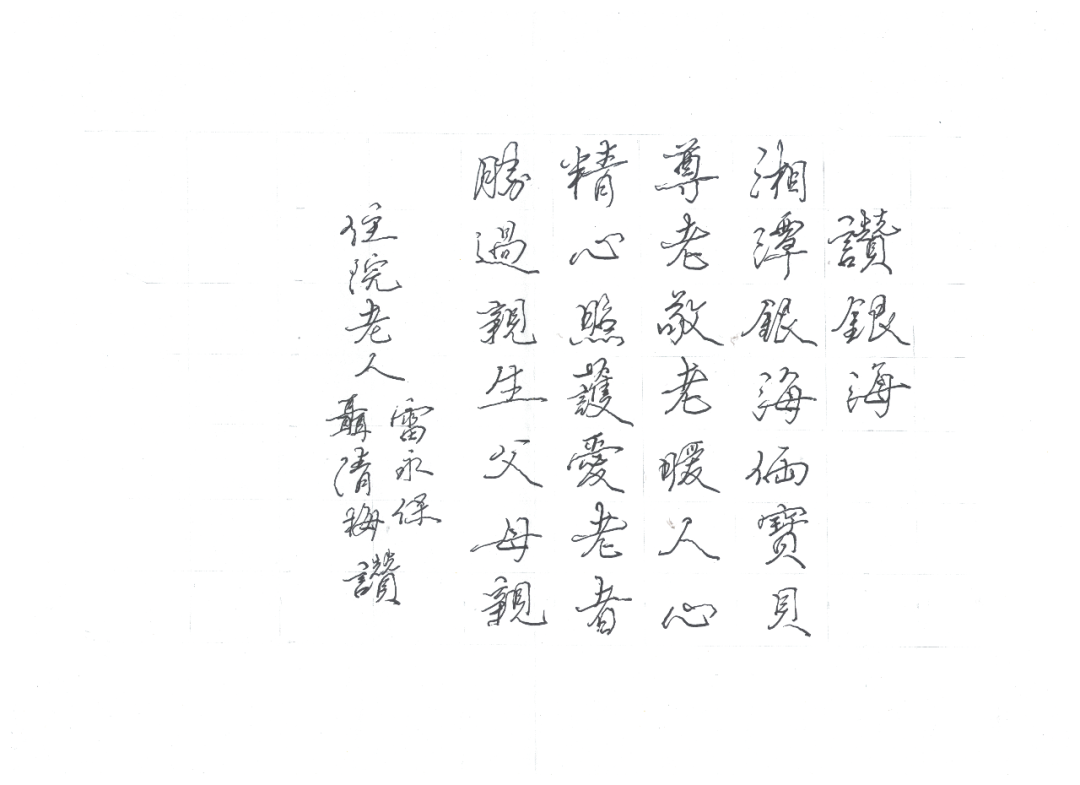 讚銀海
湘潭銀海倆寶貝
尊老敬老暖人心
精心照護愛老者
勝過親生父母親
住院老人
雷永保
聶清梅讚